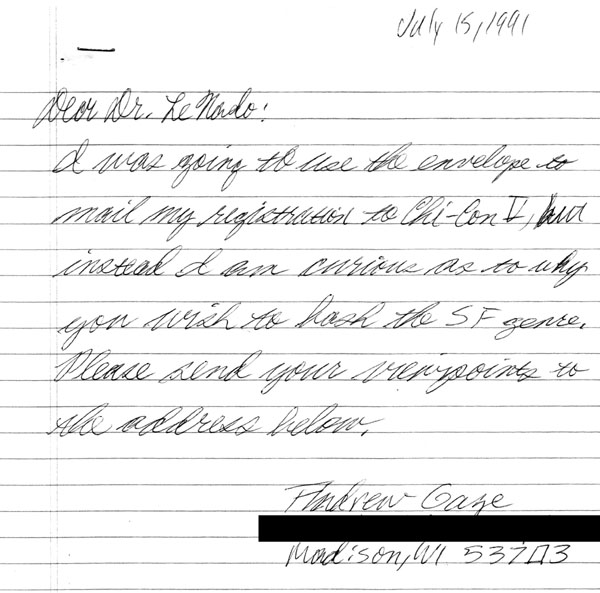 July 15, 1991
Dear Dr. Le Nardo:
I was going to use the envelope to
mail my registration to Chi-Con V, but
instead I am curious as to why
you wish to bash the SF genre.
Please send your viewpoints to
the address below.
Andrew Gaze
Madison, WI